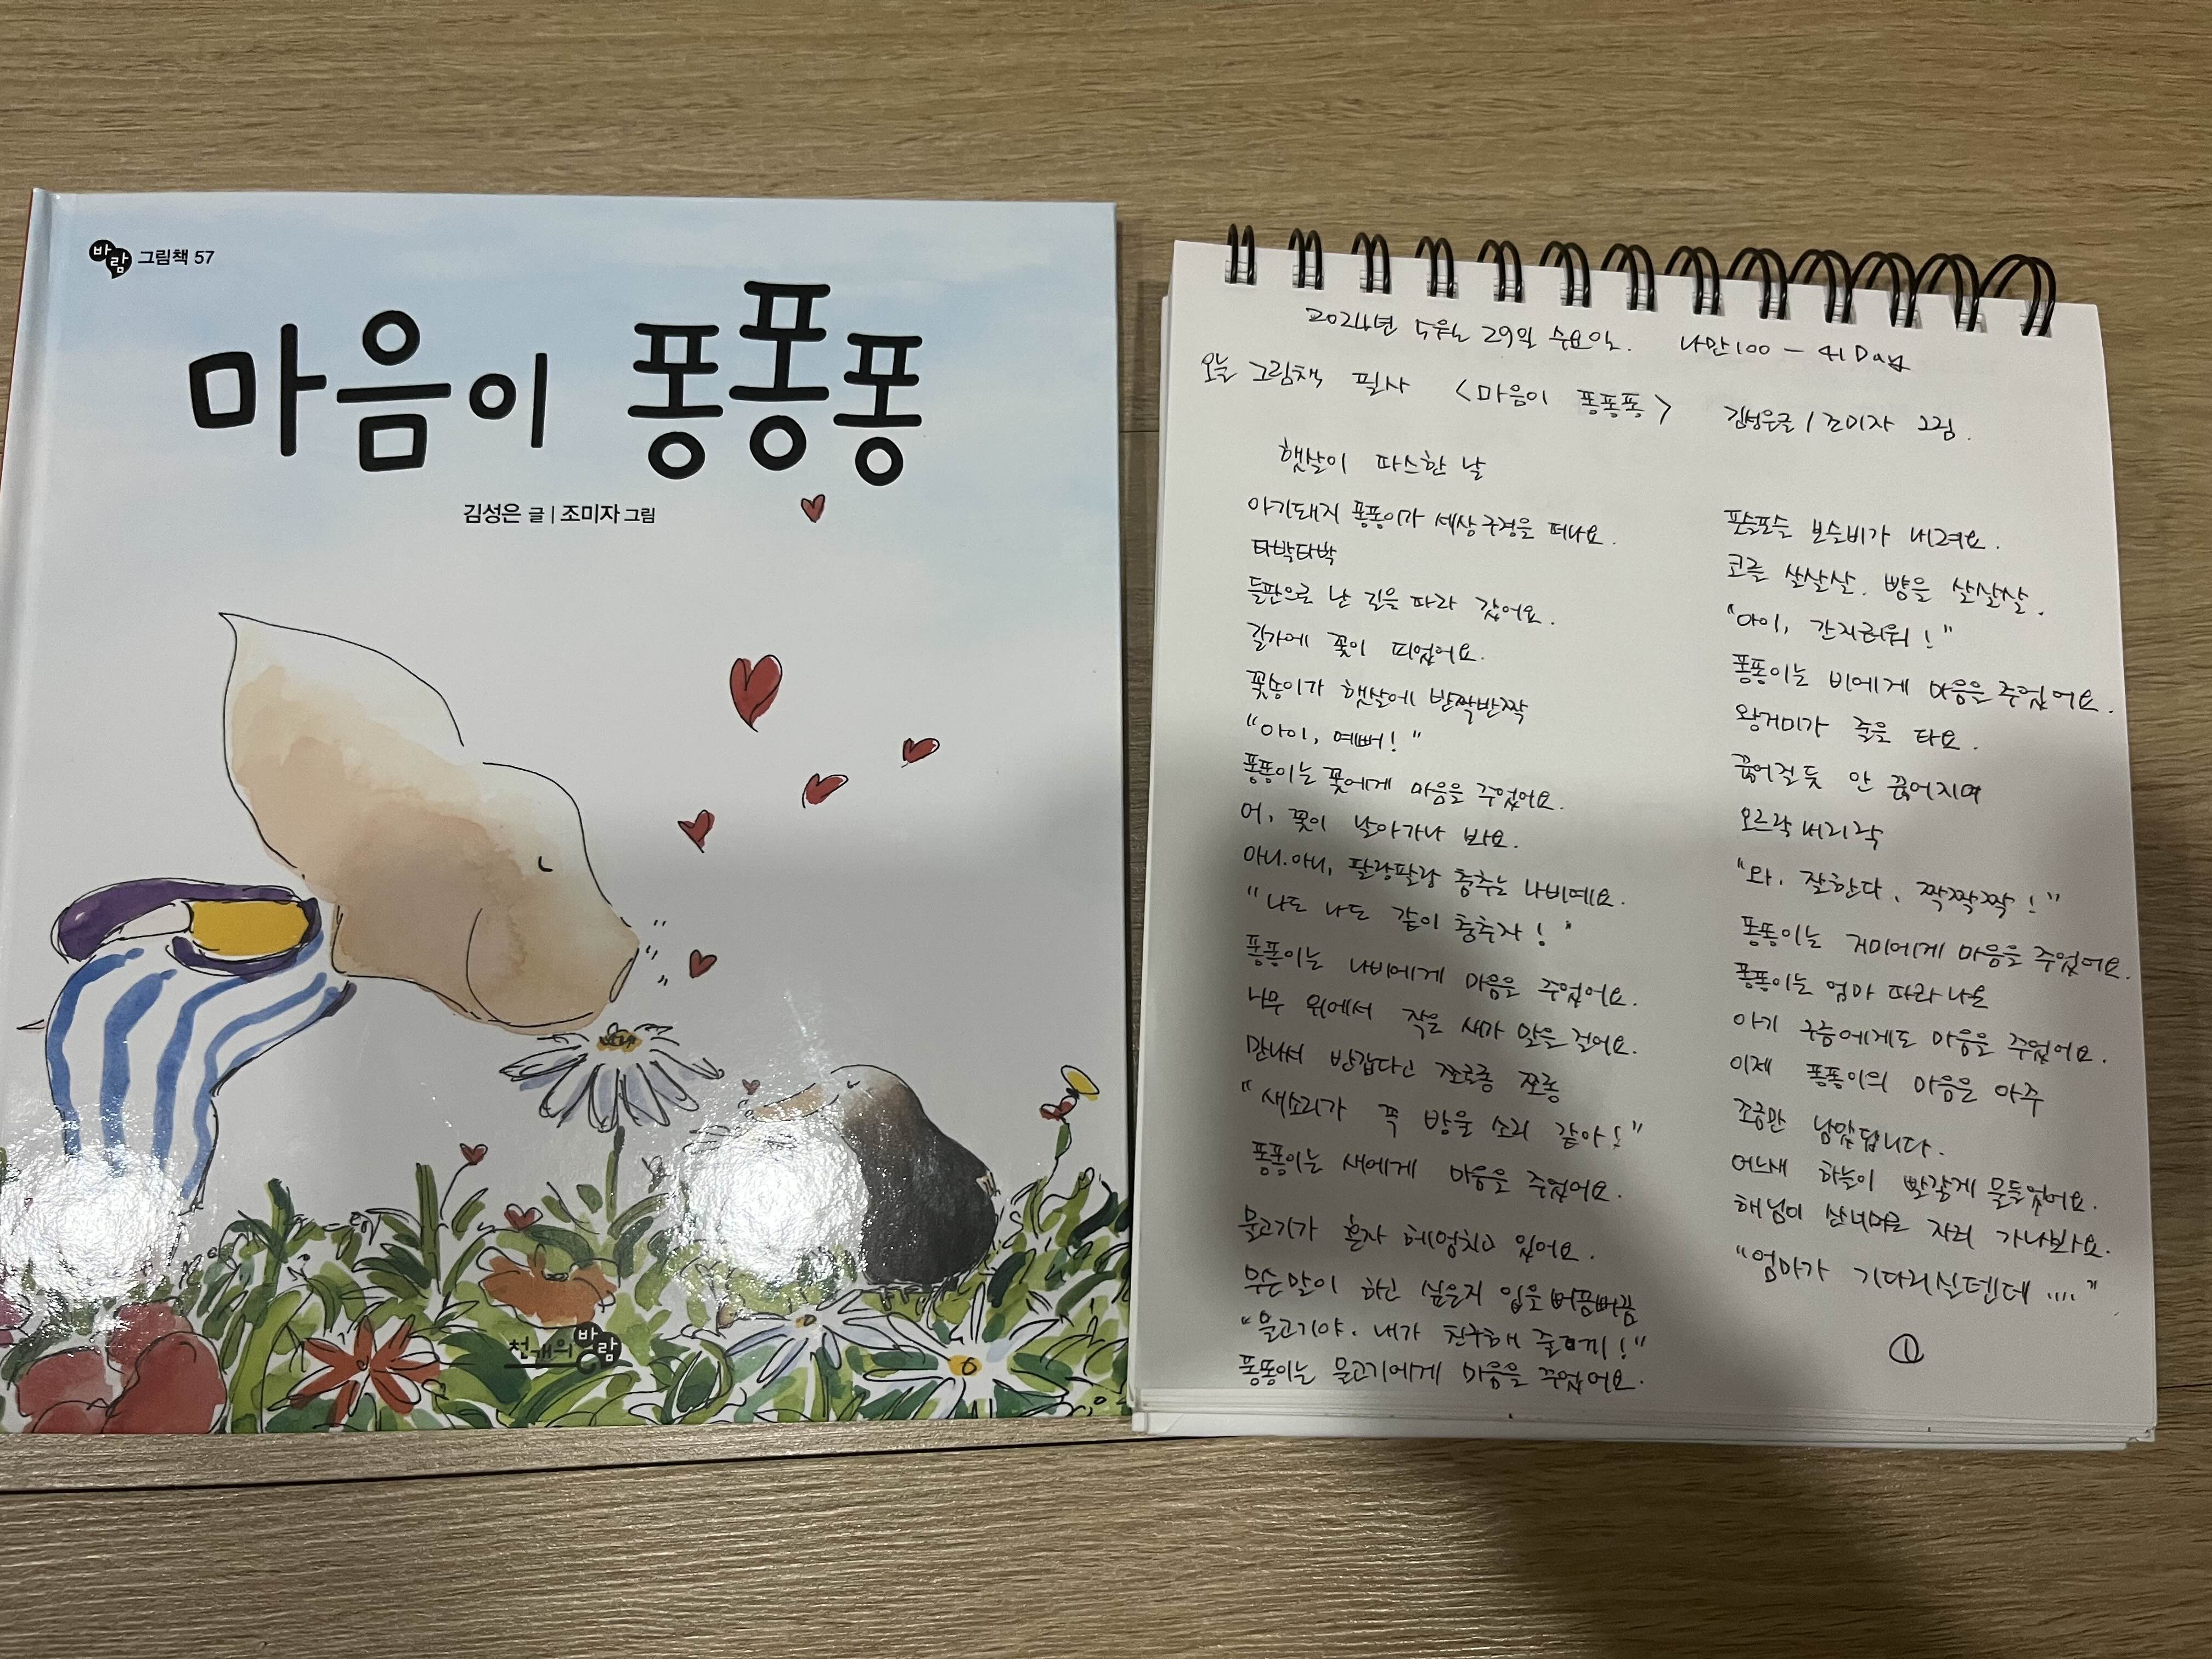 바람 그림책 57
마음이 퐁퐁퐁
김성은 글 | 조미자 그림
천개의바람
2024년 5월 29일 수요일. 나만100 - 41 Day
오늘 그림책 필사 <마음이 퐁퐁퐁> 김성은글 / 조미자 그림.
햇살이 따스한 날
아기돼지 퐁퐁이가 세상구경을 떠나요.
타박타박
들판으로 난 길을 따라 갔어요.
길가에 꽃이 피었어요.
꽃송이가 햇살에 반짝반짝
"아이, 예뻐!"
퐁퐁이는 꽃에게 마음을 주었어요.
어, 꽃이 날아가나 봐요.
아니.아니, 팔랑팔랑 춤추는 나비예요.
"나도 나도 같이 춤추자!"
퐁퐁이는 나비에게 마음을 주었어요.
나무 위에서 작은 새가 말을 걸어요.
만나서 반갑다고 쪼로롱 쪼롱
"새소리가 꼭 방울 소리 같아!"
퐁퐁이는 새에게 마음을 주었어요.
물고기가 혼자 헤엄치고 있어요.
무슨말이 하고 싶은지 입을 뻐끔뻐끔
"물고기야. 내가 친구해 줄게!"
퐁퐁이는 물고기에게 마음을 주었어요.
포슬포슬 보슬비가 내려요.
코를 살살살. 뺨을 살살살.
"아이, 간지러워!"
퐁퐁이는 비에게 마음을 주었어요.
왕거미가 줄을 타요.
끊어질듯 안 끊어지며
오르락내리락
"와. 잘한다. 짝짝짝!"
퐁퐁이는 거미에게 마음을 주었어요.
퐁퐁이는 엄마 따라나온
아기 곰에게도 마음을 주었어요.
이제 퐁퐁이의 마음은 아주
조금만 남았답니다.
어느새 하늘이 빨갛게 물들었어요.
해님이 산너머로 자러 가나봐요.
"엄마가 기다리실텐데 ...."
①